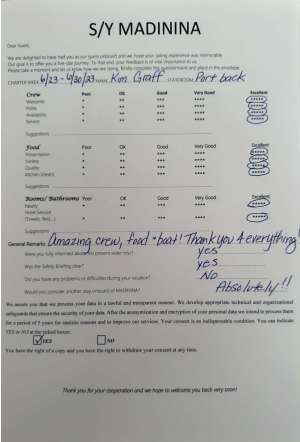 S/Y MADININA
Dear Guest,
We are delighted to have had you as our guest onboard and we hope your sailing experience was memorable.
Our goal is to offer you a five-star journey. To that end, your feedback is of vital importance to us.
Please take a moment and let us know how we are doing. Kindly complete this questionnaire and place in the envelope.
CHARTER WEEK 6/23 - 6/30/23 NAME Kim Graff STATEROOM Port back
Crew Poor OK Good Very Good Excellent
Welcome * ** *** **** *****
Polite * ** *** **** *****
Availability * ** *** **** *****
Service * ** *** **** *****
Suggestions
Food Poor OK Good Very Good Excellent
Presentation * ** *** **** *****
Variety * ** *** **** *****
Quality * ** *** **** *****
Kitchen (meals) * ** *** **** *****
Suggestions
Rooms/ Bathrooms Poor OK Good Very Good Excellent
Neatly * ** *** **** *****
Hotel Service
(Towels, Bed,..) * ** *** **** *****
Suggestions
General Remarks Amazing crew, food + boat! Thank you 4 everything!
Were you fully informed about the present water toys? yes
Was the Safety Briefing clear? yes
Did you have any problems or difficulties during your vacation? No
Would you consider another stay onboard of MADININA? Absolutely!!
We assure you that we process your data in a lawful and transparent manner. We develop appropriate technical and organizational
safeguards that ensure the security of your data. After the anonymization and encryption of your personal data we intend to process them
for a period of 5 years for statistic reasons and to improve our services. Your consent is an indispensable condition. You can indicate
YES or NO at the ticked boxes:
YES NO
You have the right of a copy and you have the right to withdraw your consent at any time.
Thank you for your cooperation and we hope to welcome you back very soon!